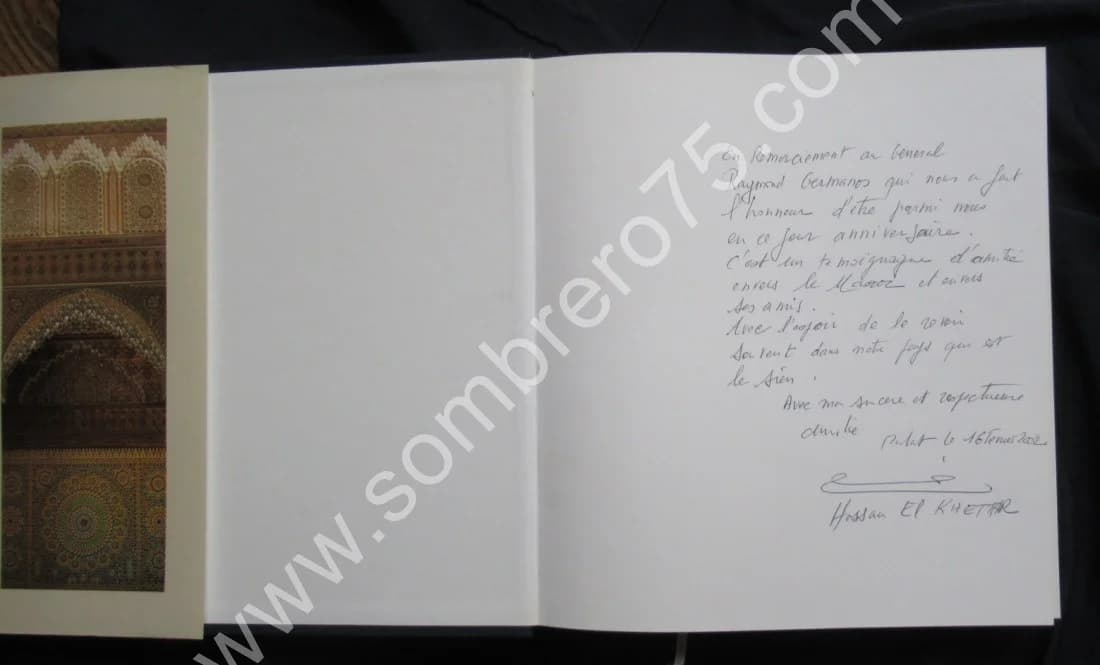 En Remerciement au General
Raymond Germanos qui nous a fait
l'honneur d'être parmi nous
en ce jour anniversaire.
C'est un temoignagne d'amitié
envers le Maroc et envers
ses amis.
Avec l'espoir de le revoir
souvent dans notre pays qui est
le sien.
Avec ma sincere et respectueuse
amitié
Rabat le 16 2002
Hassan El
www.sombrero75.com